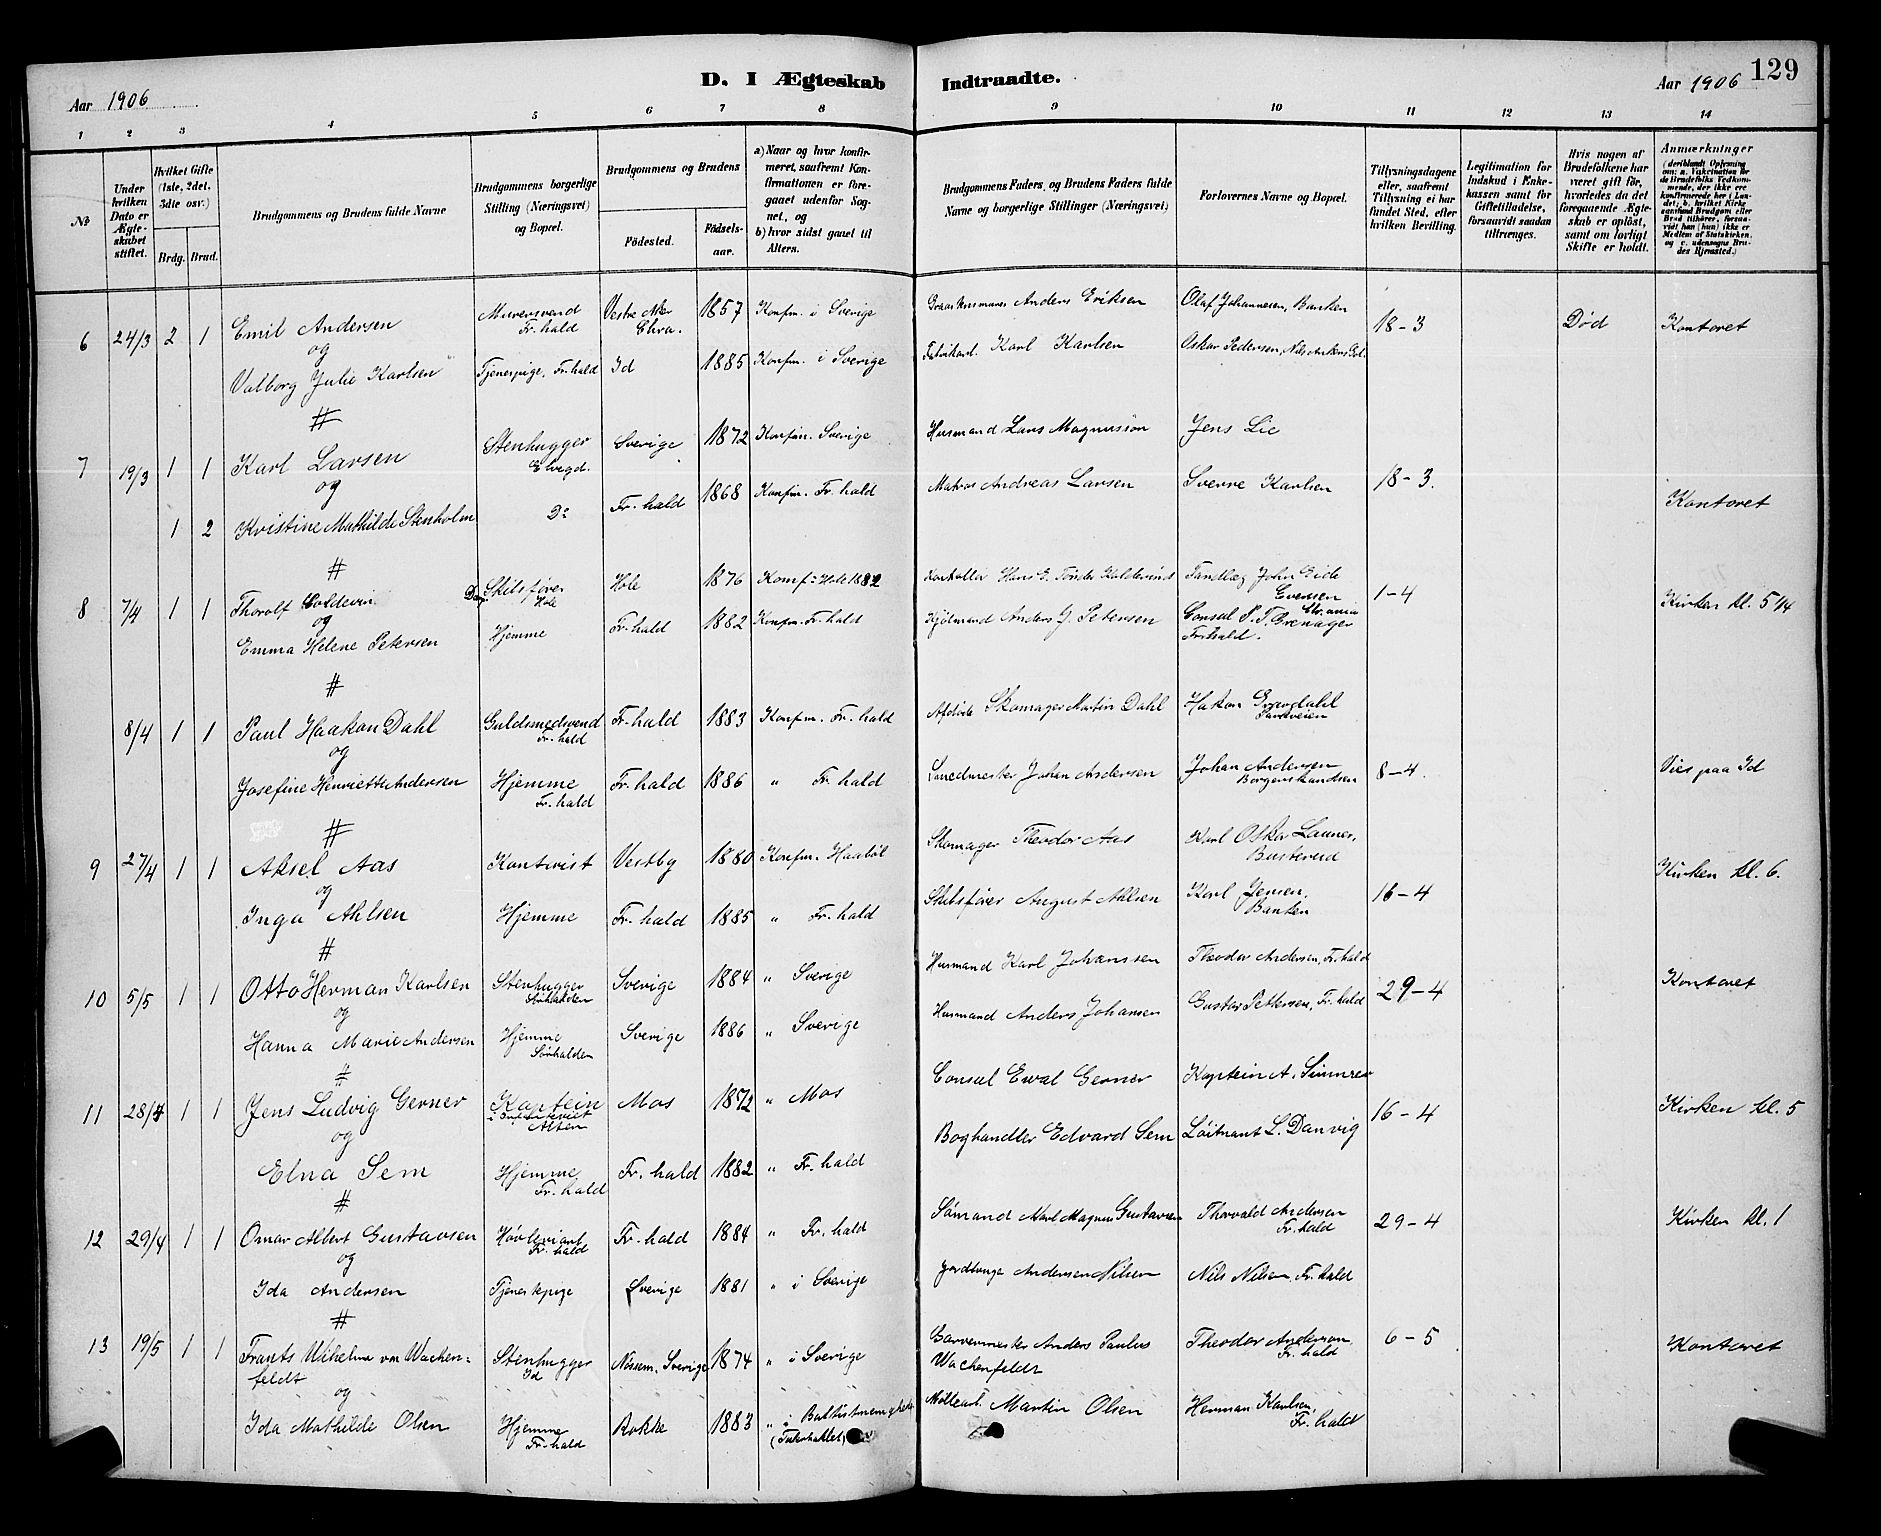 D. I Ægteskab Indtraadte.
Aar 1906
Aar 1906 129
1 2 3 4 5 6 7 8 9 10 11 12 13 14
№
Under hvilken Dato er Ægteskabet stiftet.
Hvilket Gifte (1ste, 2det, 3die osv.)
Brdg. Brud.
Brudgommens og Brudens fulde Navne
Brudgommens borgerlige Stilling (Næringsvei) og Bopæl.
Brudgommens og Brudens
Fødested. Fødselsaar.
a) Naar og hvor konfirmeret, saafremt Konfirmationen er foregaaet udenfor Sognet, og
b) hvor sidst gaaet til Alters.
Brudgommens Faders og Brudens Faders fulde Navne og borgerlige Stillinger (Næringsvei)
Forlovernes Navne og Bopæl.
Tillysningsdagene eller, saafremt Tillysning ei har fundet Sted, efter hvilken Bevilling.
Legitimation for Indskud i Enkekassen samt for Giftetilladelse, forsaavidt saadan tiltrænges.
Hvis nogen af Brudefolkene har været gift før, hvorledes da det foregaaende Ægteskab er opløst, samt om lovligt Skifte er holdt.
Anmærkninger
(deriblandt Oplysning om: a. Vakcination for de Brudefolks Vedkommende, der ikke ere konfirmerede her i Landet; b. hvilket Kirkesamfund Brudgom eller Brud tilhører, forsaavidt han (hun) ikke er Medlem af Statskirken, og c. udensogns Brudes Hjemsted.)
6 24/3 2 1 Emil Andersen Murersvend Fr.hald Vestre Aker Chra. 1857 Konfm. i Sverige Anders Eriksen Olaf Johannesen, Banken 18-3 Død Kontoret
og
Valborg Julie Karlsen Tjenespige, Fr.hald Id 1885 Konfm. i Sverige Karl Karlsen Oskar Pedersen,
#
7 19/3 1 1 Karl Larsen Stenhugger Sverige 1872 Konfm. Sverige Husmand Lars Magnusson Jens Lie 18-3. Kontoret
og
1 2 Kristine Mathilde Stenholm Do Fr.hald 1868 Konfm. Fr.hald Matros Andreas Larsen Sverre Karlsen
#
8 7/4 1 1 Thorolf Coldevin Skibsfører Hole Hole 1876 Konf: Hole 1892 Hans E. Tønder Koldevind Tandlæg John Eide Evensen Chr.ania 1-4 Kirken kl. 5 1/4
og
Emma Helene Petersen Hjemme Fr.hald 1882 Konfm. Fr.hald Kjølmand Anders J. Petersen Consul P. T. Brenager Fr.hald.
#
8/4 1 1 Paul Haakon Dahl Guldsmedsvend Fr.hald Fr.hald 1883 Konfm. Fr.hald Afdøde Skomager Martin Dahl Hakon Parkveien 8-4. Vies paa Id
og
Josefine Henriette Andersen Hjemme Fr.hald Fr.hald 1886 " Fr.hald Smedmester Johan Andersen Johan Andersen Borgermandsen
#
9 27/4 1 1 Aksel Aas Kontorist Vestby 1880 Konfm. Haabøl Skomager Theodor Aas Karl Oskar Busterud 16-4 Kirken kl. 6.
og
Inga Ahlsen Hjemme Fr.hald 1885 " Fr.hald Skibsfører August Ahlsen Karl Jensen, Banken
#
10 5/5 1 1 Otto Herman Karlsen Stenhugger Sørhalden Sverige 1884 " Sverige Husmand Karl Johanssen Theodor Andersen, Fr.hald 29-4 Kontoret
og
Hanna Marie Andersen Hjemme Sørhalden Sverige 1886 " Sverige Husmand Anders Johansen Gustav Pettersen, Fr.hald
#
11 28/4 1 1 Jens Ludvig Gerner Kaptein i Infanteriet Alten Mos 1872 " Mos Consul Eval Gerner Kaptein A. 16-4 Kirken kl. 5
og
Elna Sem Hjemme Fr.hald Fr.hald 1882 " Fr.hald Boghandler Edvard Sem Løitnant L. Danvig
#
12 29/4 1 1 Omar Albert Gustavsen Fr.hald Fr.hald 1884 " Fr.hald Sømand Karl Magnus Gustavsen Thorvald Andersen Fr.hald 29-4 Kirken kl. 1
og
Ida Andersen Tjenestepige Sverige 1881 " i Sverige Andersen Nilsen Nils Nilsen, Fr.hald
#
13 19/5 1 1 Frants Wilhelm von Wachenfeldt Stenhugger Id Nössem. Sverige 1874 " i Sverige Garvermester Anders Paulus Wachenfeldt Theodor Anderson, Fr.hald 6-5 Kontoret
og
Ida Mathilde Olsen Hjemme Fr.hald Rokke 1883 " i Martin Olsen Herman Karlsen, Fr.hald